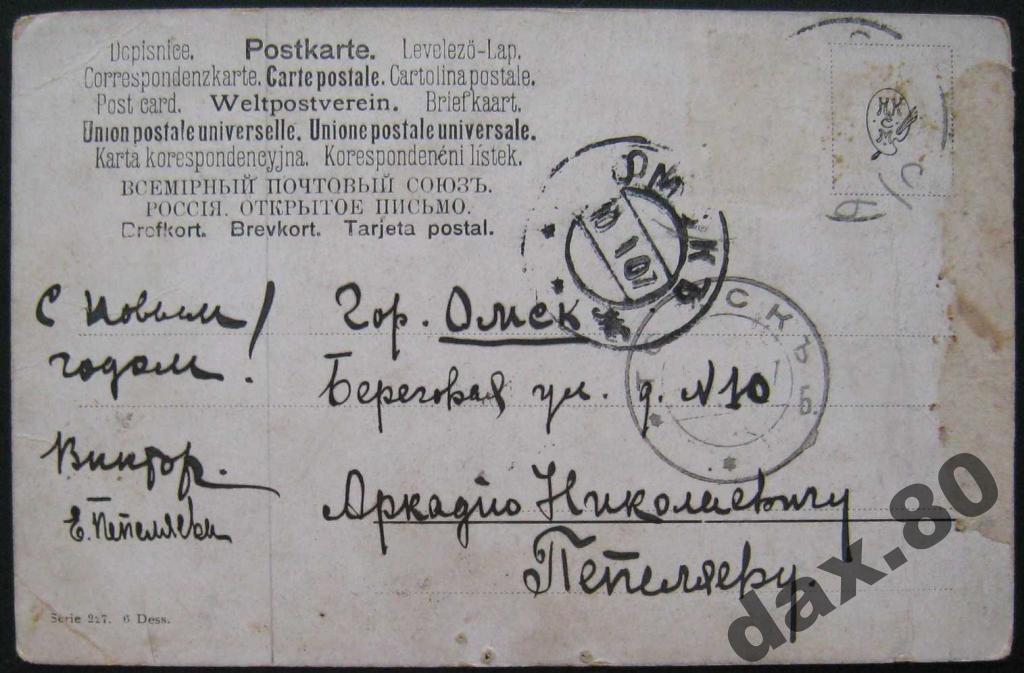 Dopisnice. Postkarte. Levelező-Lap.
Correspondenzkarte. Carte postale. Cartolina postale.
Post card. Weltpostverein. Briefkaart.
Union postale universelle. Unione postale universale.
Karta korespondencyjna. Korespondenční lístek.
ВСЕМІРНЫЙ ПОЧТОВЫЙ СОЮЗЪ.
РОССІЯ. ОТКРЫТОЕ ПИСЬМО.
Brefkort. Brevkort. Tarjeta postal.
НК
С
М
ОМСКЪ
10 1 07
С Новым
годом!
Виктор.
Е. Пепеляева
Гор. Омск
Береговая ул. д. № 10
Аркадію Николаевичу
Пепеляеву.
СКЪ
Б.
Serie 227. 6 Dess.
dax.80